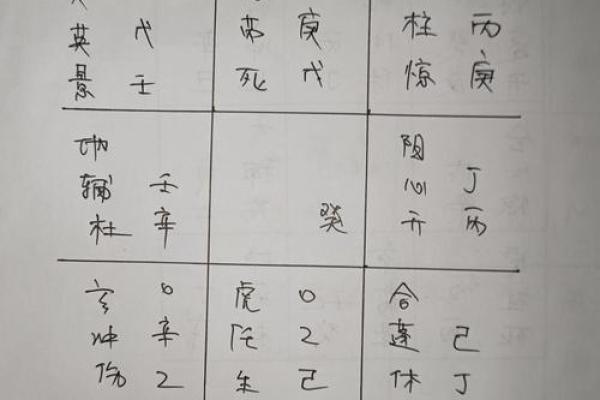 英 戊 芮 庚 柱 丙
景 壬 死 戊 惊 庚
地 阴
辅 壬 心 丁
杜 辛 癸 开 丙
玄 0 虎 0 合
冲 辛 任 乙 蓬 己
伤 乙 生 己 休 丁